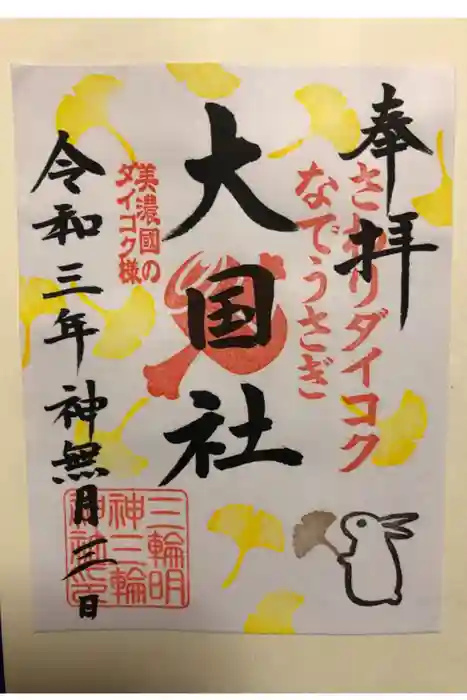 奉拝
さわりダイコク
なでうさぎ
大国社
美濃國の
ダイコク様
令和三年神無月三日
三輪明
神三輪
神社之印